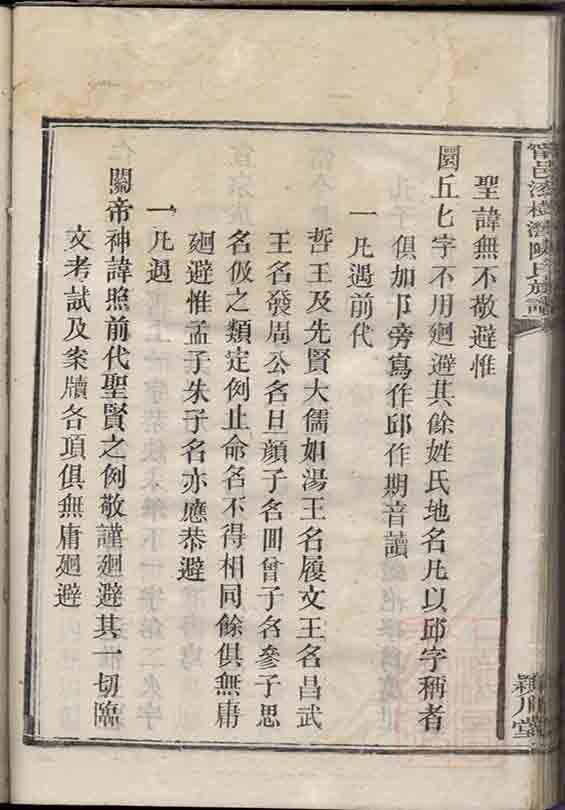 聖諱無不敬避惟
圜丘匕字不用廻避其餘姓氏地名凡以邱字稱者
俱加阝旁寫作邱作期音讀
一凡遇前代
哲王及先賢大儒如湯王名履文王名昌武
王名發周公名旦顏子名囬曾子名參子思
名伋之類定例止命名不得相同餘俱無庸
廻避惟孟子朱子名亦應恭避
一凡遇
關帝神諱照前代聖賢之例敬謹廻避其一切臨
文考試及案牘各項俱無庸廻避
陳氏族譜
潁川堂